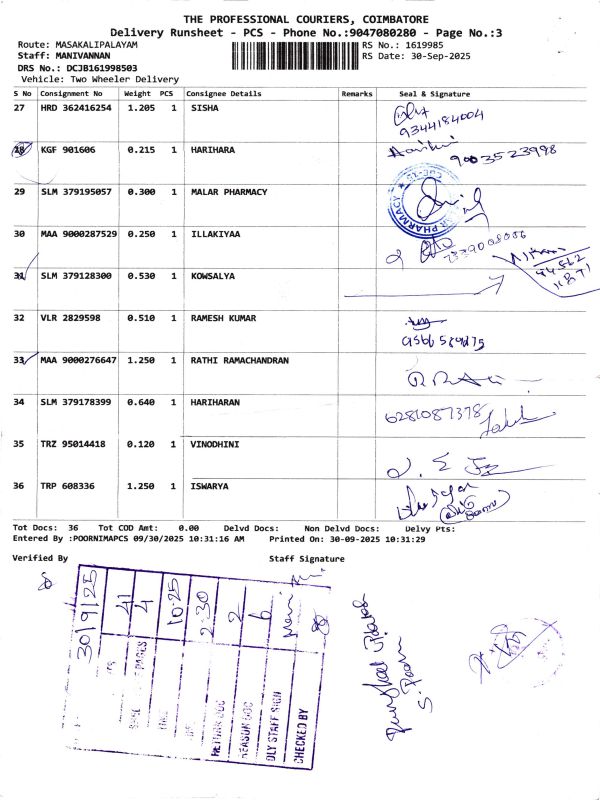 THE PROFESSIONAL COURIERS, COIMBATORE
Delivery Runsheet - PCS - Phone No.:9047080280 - Page No.:3
Route: MASAKALIPALAYAM RS No.: 1619985
Staff: MANIVANNAN RS Date: 30-Sep-2025
DRS No.: DCJB161998503
Vehicle: Two Wheeler Delivery
S No Consignment No Weight PCS Consignee Details Remarks Seal & Signature
27 HRD 362416254 1.205 1 SISHA
9344184004
28 KGF 901606 0.215 1 HARIHARA
9003523998
29 SLM 379195057 0.300 1 MALAR PHARMACY
PHARMACY
30 MAA 9000287529 0.250 1 ILLAKIYAA
31 SLM 379128300 0.530 1 KOWSALYA
32 VLR 2829598 0.510 1 RAMESH KUMAR
33 MAA 9000276647 1.250 1 RATHI RAMACHANDRAN
34 SLM 379178399 0.640 1 HARIHARAN
6281087378
35 TRZ 95014418 0.120 1 VINODHINI
36 TRP 608336 1.250 1 ISWARYA
Tot Docs: 36 Tot COD Amt: 0.00 Delvd Docs: Non Delvd Docs: Delvy Pts:
Entered By :POORNIMAPCS 09/30/2025 10:31:16 AM Printed On: 30-09-2025 10:31:29
Verified By Staff Signature
30/9/25
41
4
10.25
2.30
RETURN DOC 2
REASON DOC 6
DLY STAFF SIGN Mani
CHECKED BY